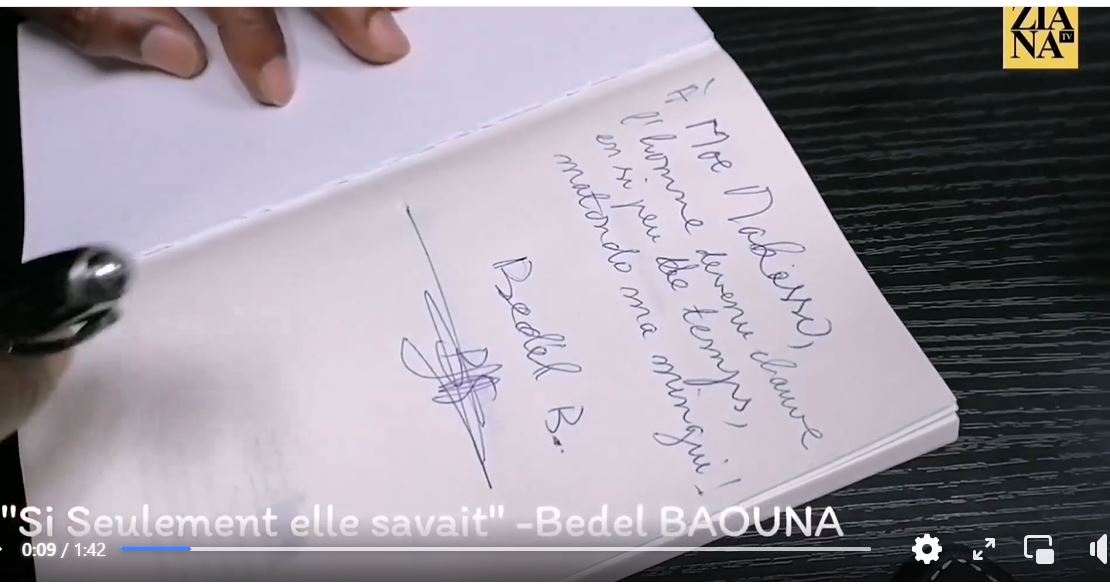 ZIA
NA TV
À Moe Makosso,
l'homme devenu chauve
en si peu de temps,
matondo ma mingui !
Bedel B.
"Si Seulement elle savait" -Bedel BAOUNA
0:09 / 1:42